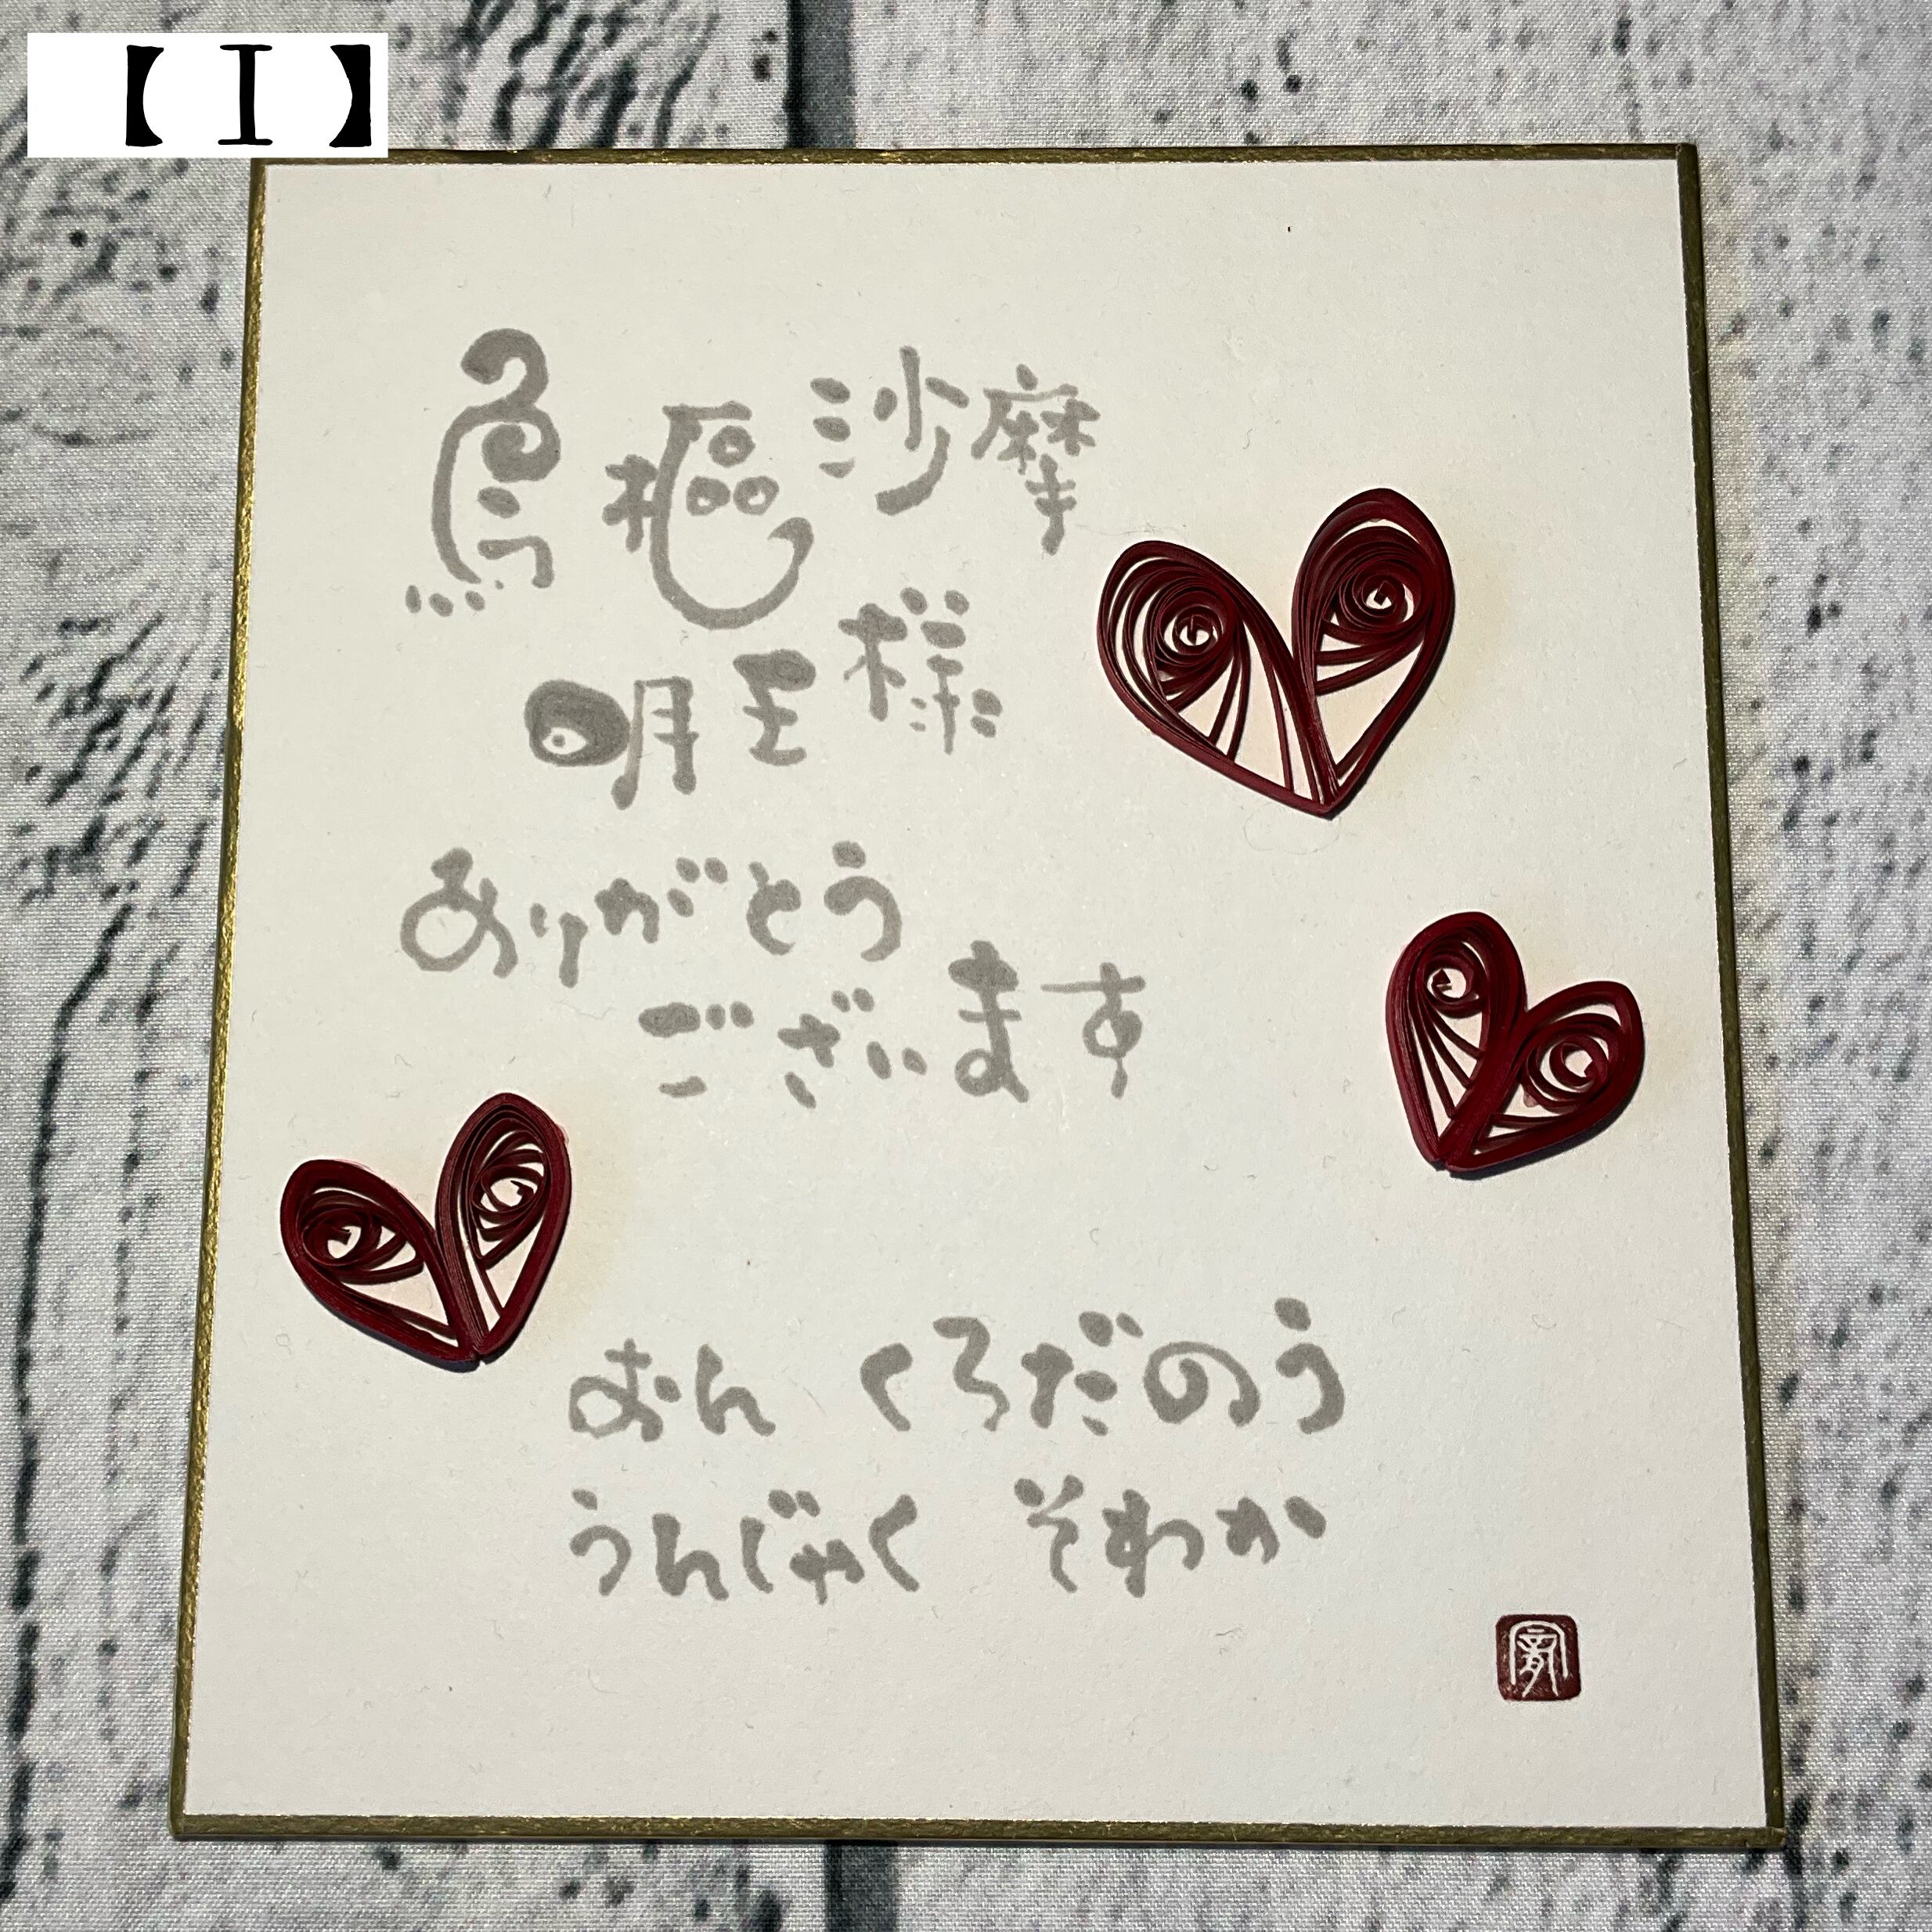 【I】
烏樞沙摩
明王様
ありがとう
ございます
おん くろだのう
うんじゃく そわか